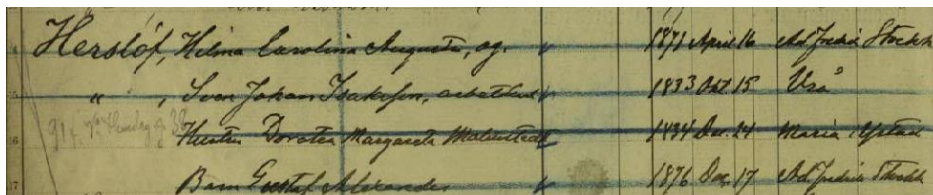 Herslöf, Helina Carolina Augusta, og. 1871 April 16 Ad. Fredrik Stockh
" , Sven Johan Isaksson, 1833 Okt 15 Vrå
Hustru Dorotea Margareta Malmstedt 1834 Dec. 24 Maria, Ystad
Barn Gustaf Alexander 1876 Dec. 17 Ad. Fredrik Stockh